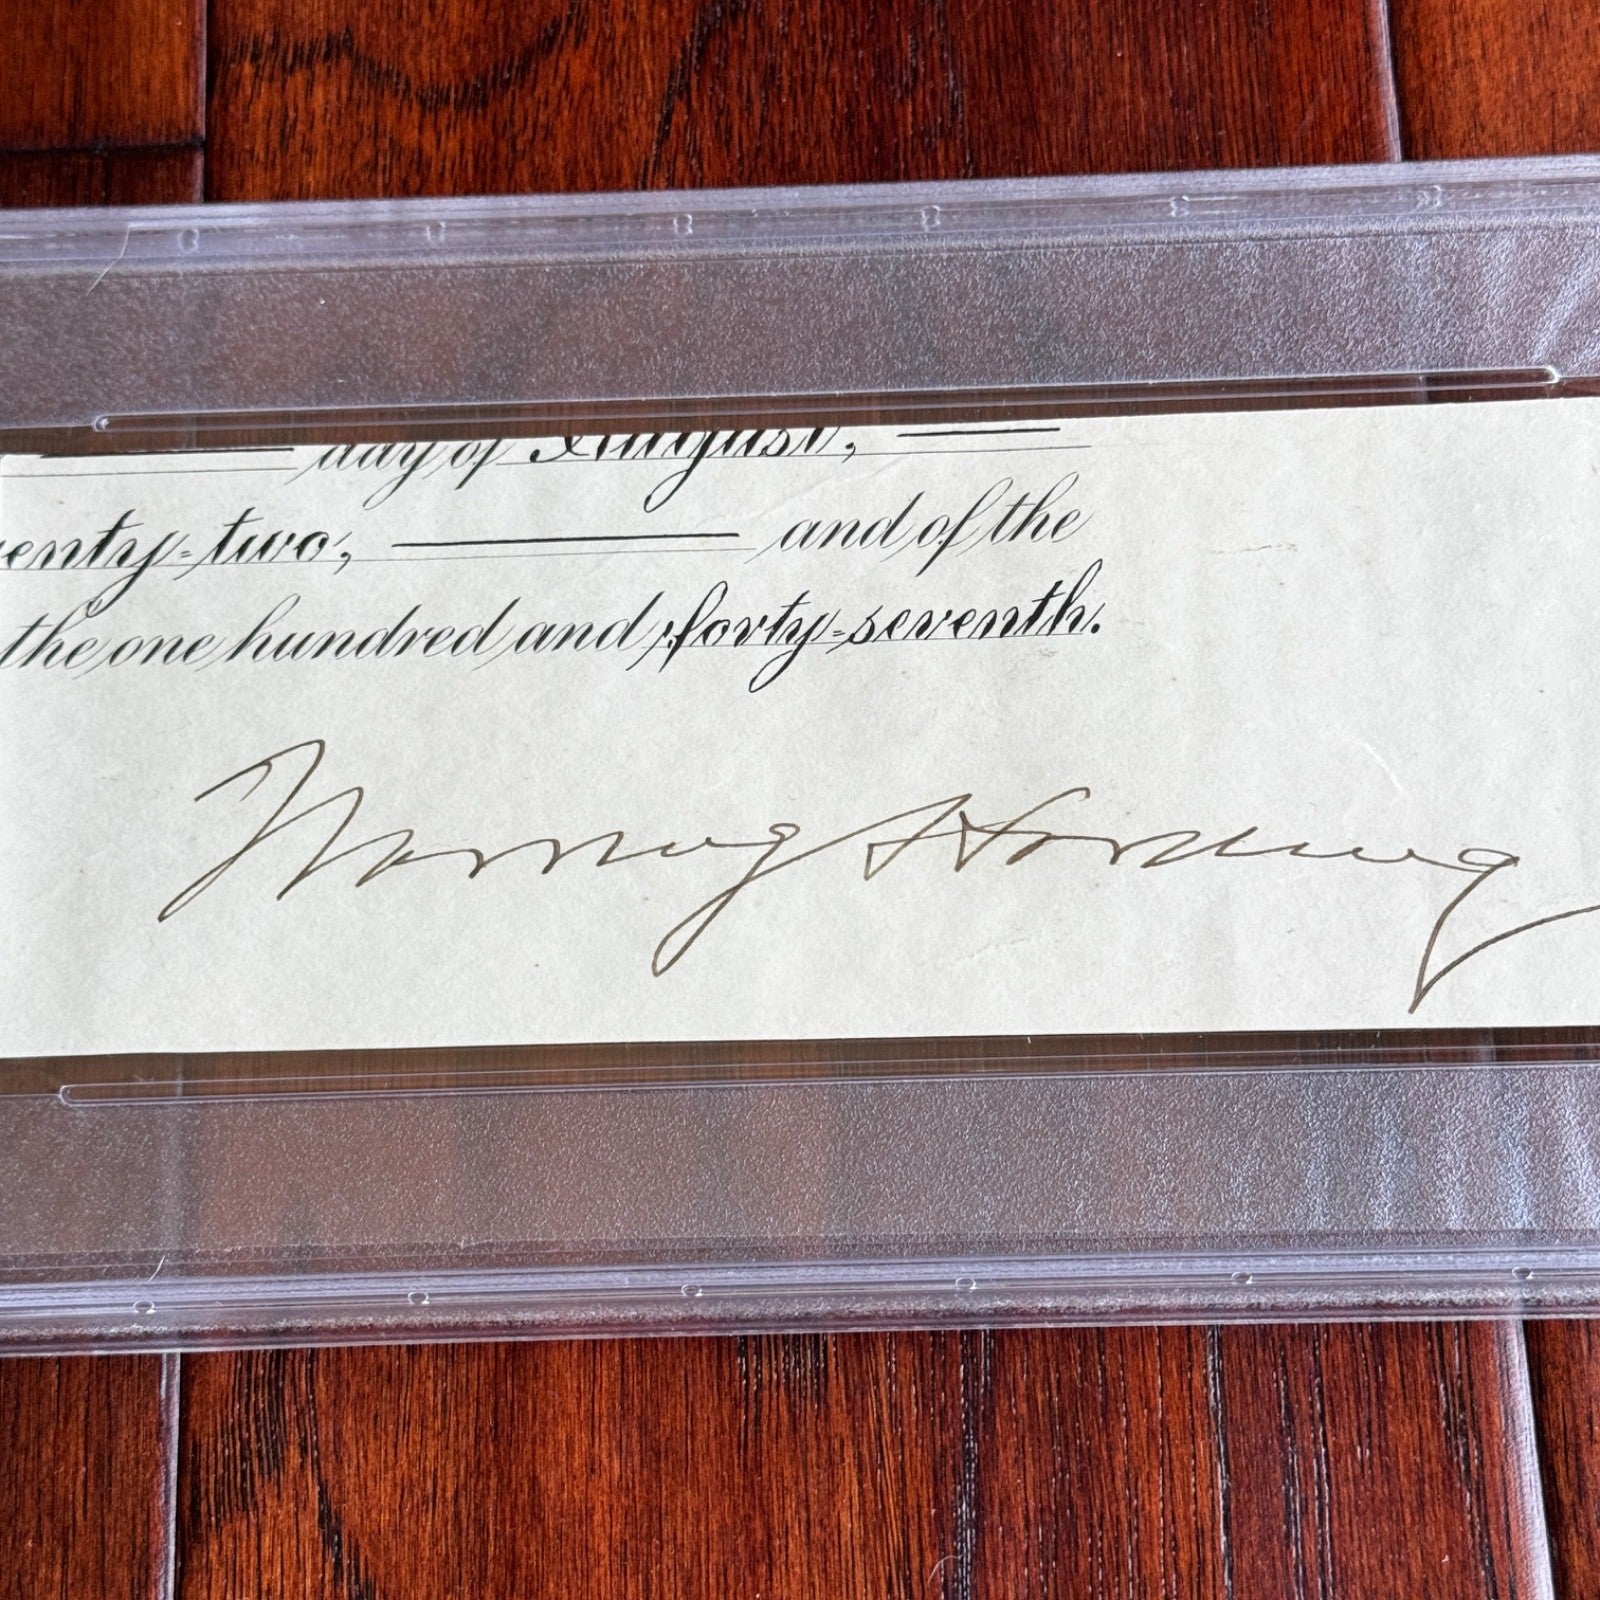 day of August,
enty-two, and of the
the one hundred and forty-seventh.